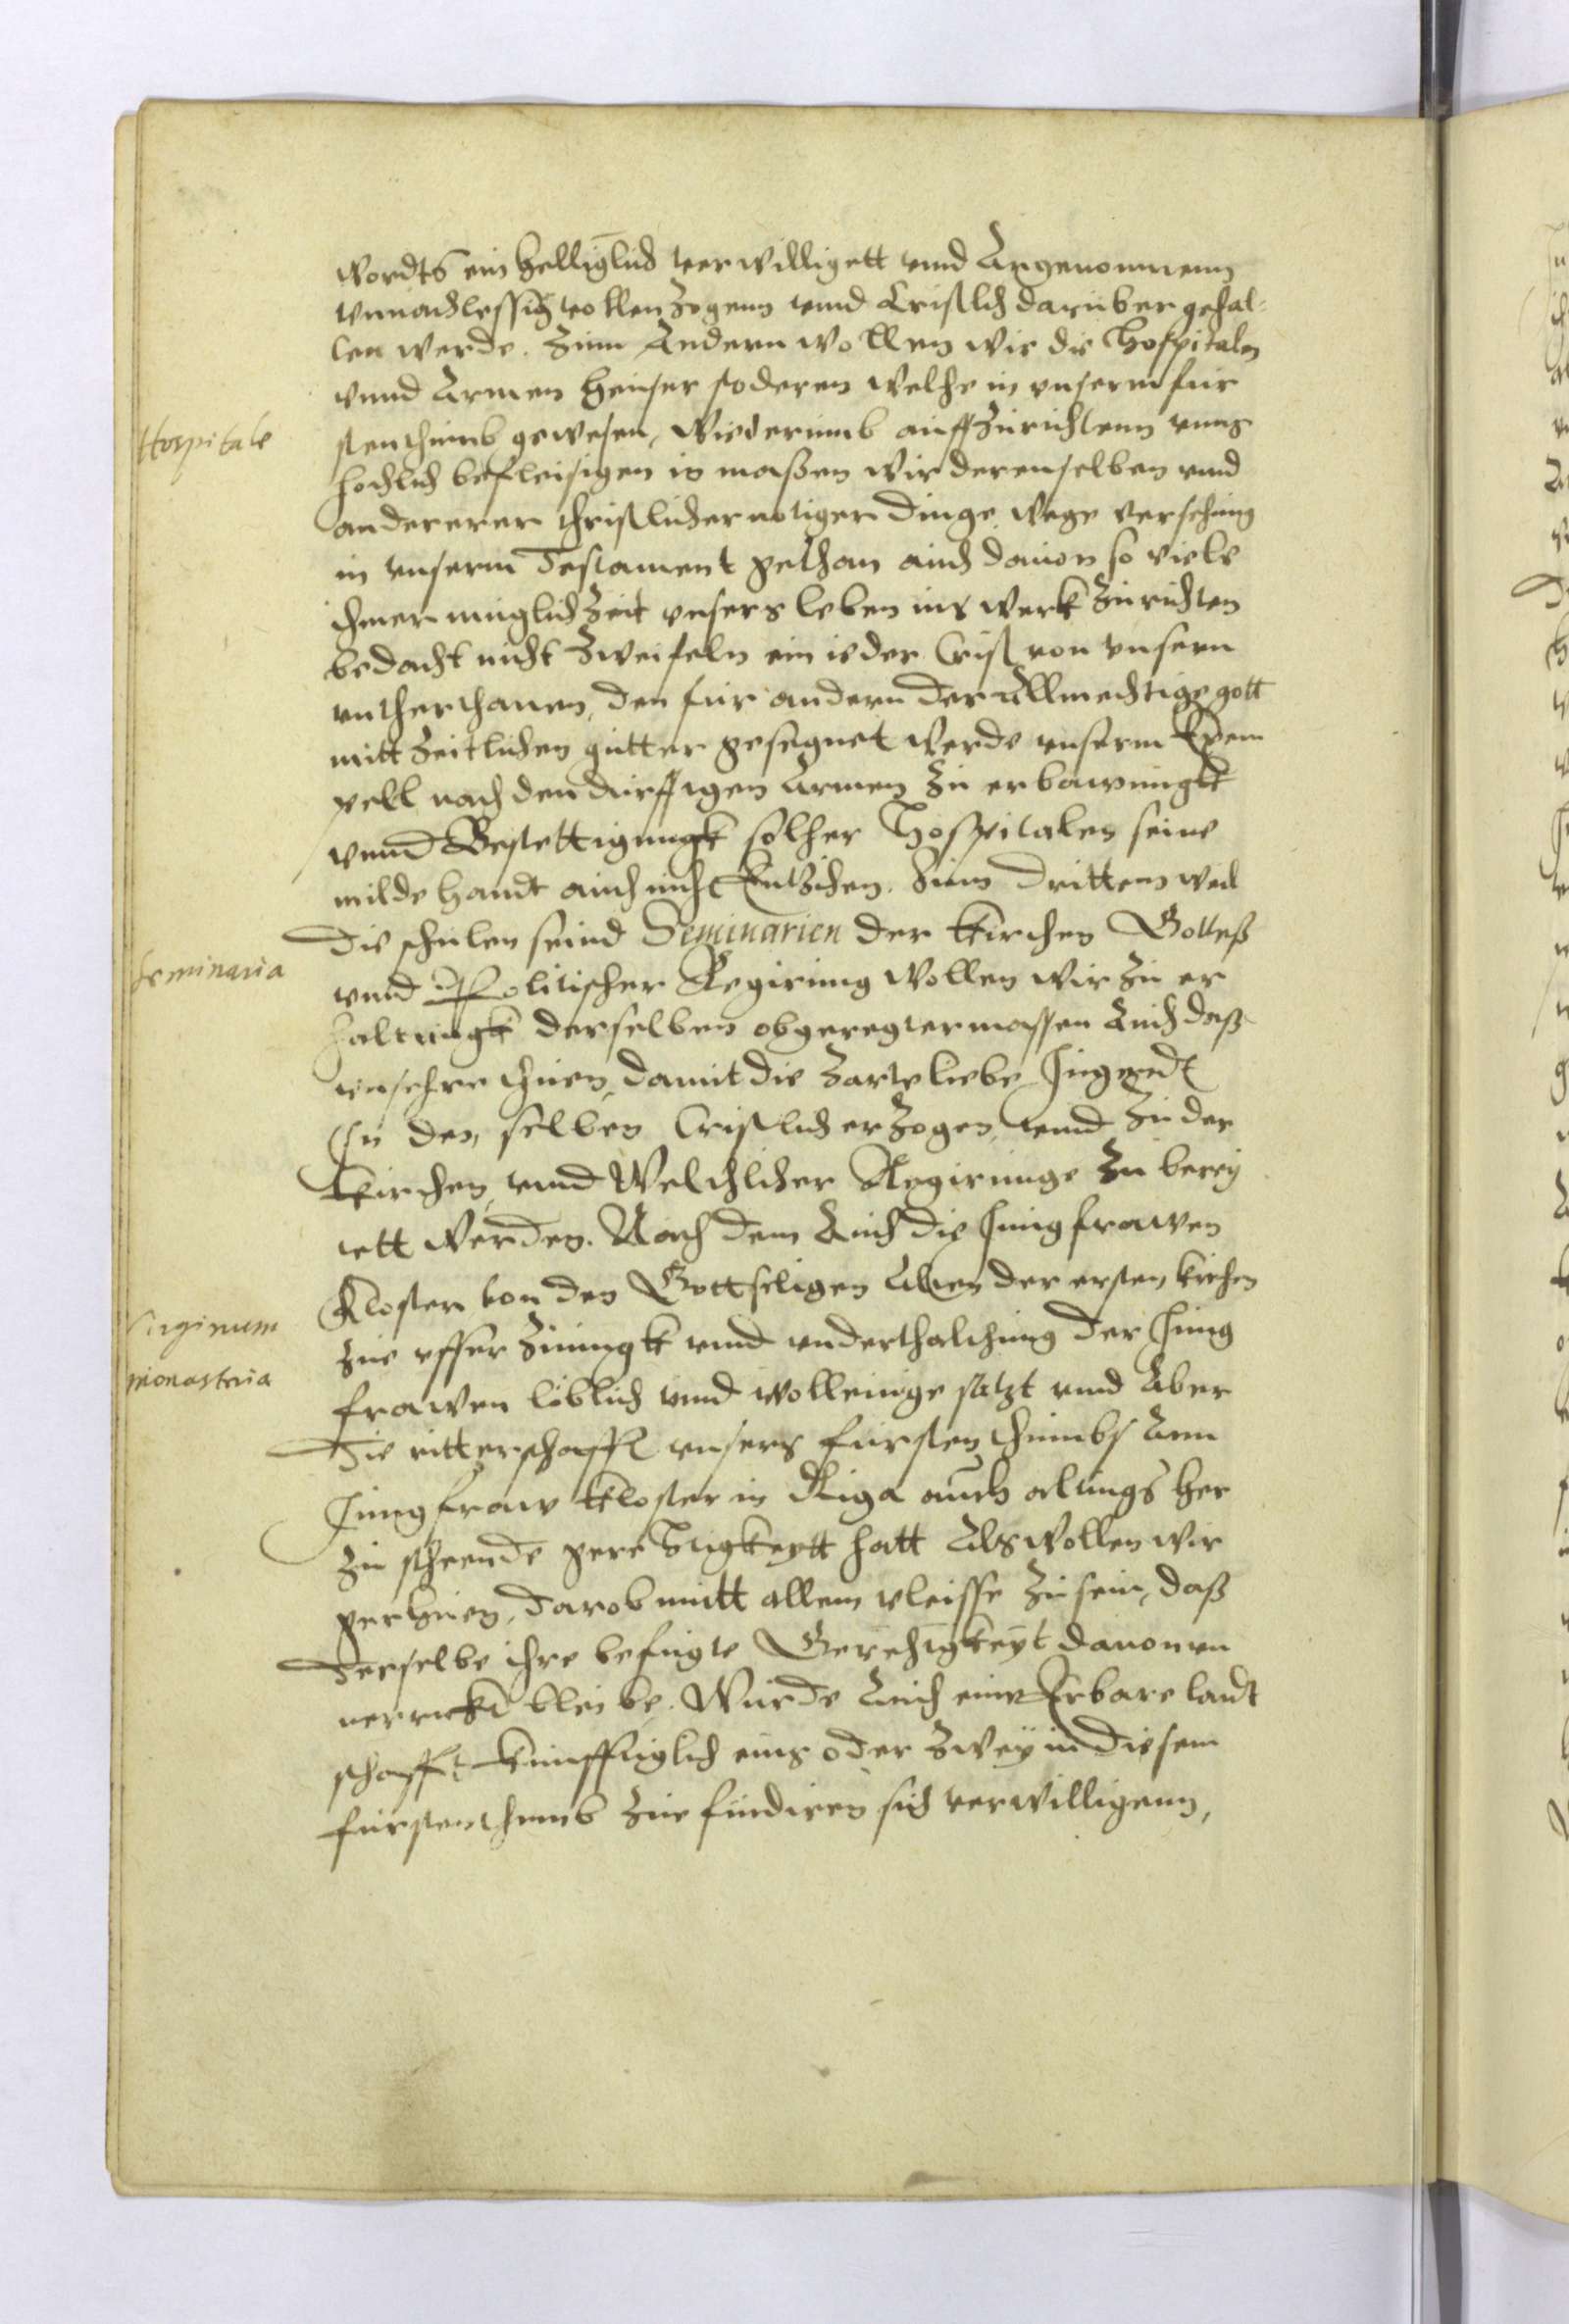 wordts ein helliglich verwilligett vnnd Angenommenn
vnnachlessig vollenzogenn vnnd Cristlich daruber gehal-
ten werde. Zum Andern wollen wir die Hospitalen
vnnd Armen heuser so deren welche in vnserm fur
Hospitale
stenthumb gewesen, wiederumb auffzurichtenn vnns
hochlich befleisigen in maßen wir derenselben vnnd
andererer christlicher notiger dinge wege versehung
in vnserm Testament gethan auch dauon so viele
jhmer muglich Zeit vnsers leben ins werk zurichten
bedacht nicht Zweifeln ein ieder Crist von vnsern
vntherthanen, den fur andern der Allmechtige gott
mitt zeitlichen gutter gesegnet werde vnserm Exem
pell nach den durfftigen Armen zu erbawungk
vnnd Bestettigungk solher Hospitalen seine
milde handt auch nicht Entzihen. Zum dritten weil
die schulen seind Seminarien der Kirchen Gottess
Seminaria
vnnd Politischer Regirung wollen wir zu er
haltungk derselben obgeregter massen Auch daß
vnsehre thuen, damit die Zarte liebe Jugendt
In den selben Cristlich erzogen, vnnd zu der
Kirchen, vnnd Weltlicher Regirunge zu berey
tett werden. Nach dem Auch die Jungfrawen
Kloster von den Gottseligen Alten der ersten kirchen
Virginum
zur vfferziuungk vnnd vnderthalthung der Jung
monasteria
frawen loblich vnnd wolleinge satzt vnnd Aber
die ritterschafft vnsers furstenthumbs Ann
Jungfraw Kloster in Riga auch alungs her
zu steende gerechtigkeytt hatt Als wollen wir
gerhuen, darob mitt allem vleisse zu sein, daß
derselbe ihre befugte Gerehtigkeyt dauon vn
verruckt bleibe. Wurde Auch eine Erbare landt
schafft kunfftiglich eins oder zwey in diesem
furstenthumb zur fundiren sich verwilligenn,